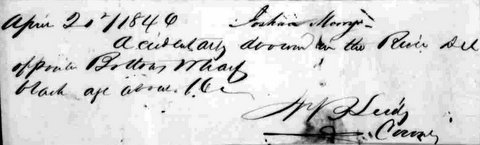 April 20th / 1846 Joshua Morry
Accidentaly drownd in the River Del
opposite Bottons Wharf
black age about 16
Wm B Leidy
Coroner